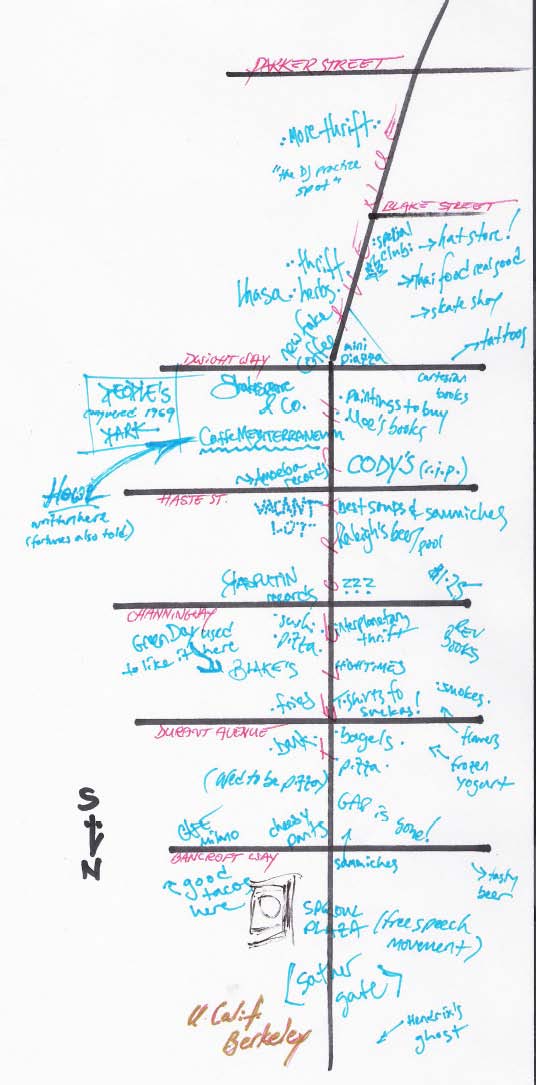 PARKER STREET
:More thrift:
"the DJ practice
spot"
BLAKE STREET
:special
clubs:
→hat store!
→thai food real good
→skate shop
→tattoos
:thrift
lhasa: herbs.
new fake
coffee
mini
piazza
DWIGHT WAY
cartesian
books
PEOPLE'S
conquered 1969
PARK
Shakespeare
& Co.
:paintings to buy
Moe's books
Caffe MEDITERRANEUM
→Amoeba
records
CODY'S (r.i.p.)
HOWL
written here
(fortunes also told)
HASTE ST.
VACANT
LOT
best soups & sammiches
Raleigh's beer/pool
RASPUTIN
records
???
$1.75
CHANNING WAY
Green Day used
to like it here
BLAKE'S
:sushi
pizza
interplanetary
thrift
REV
BOOKS
HIGH TIMES
.fries
T-shirts fo
suckas!
:smokes.
DURANT AVENUE
flowers
frozen
yogurt
.bank.
(used to be pizza)
:bagels.
pizza.
GAP is
gone!
S
N
CAFE
milano
cheesy
pants
BANCROFT WAY
sammiches
tasty
beer
good
tacos
here
SPROUL
PLAZA
(free speech
movement)
[sather
gate]
U. Calif.
Berkeley
Hendrix's
ghost